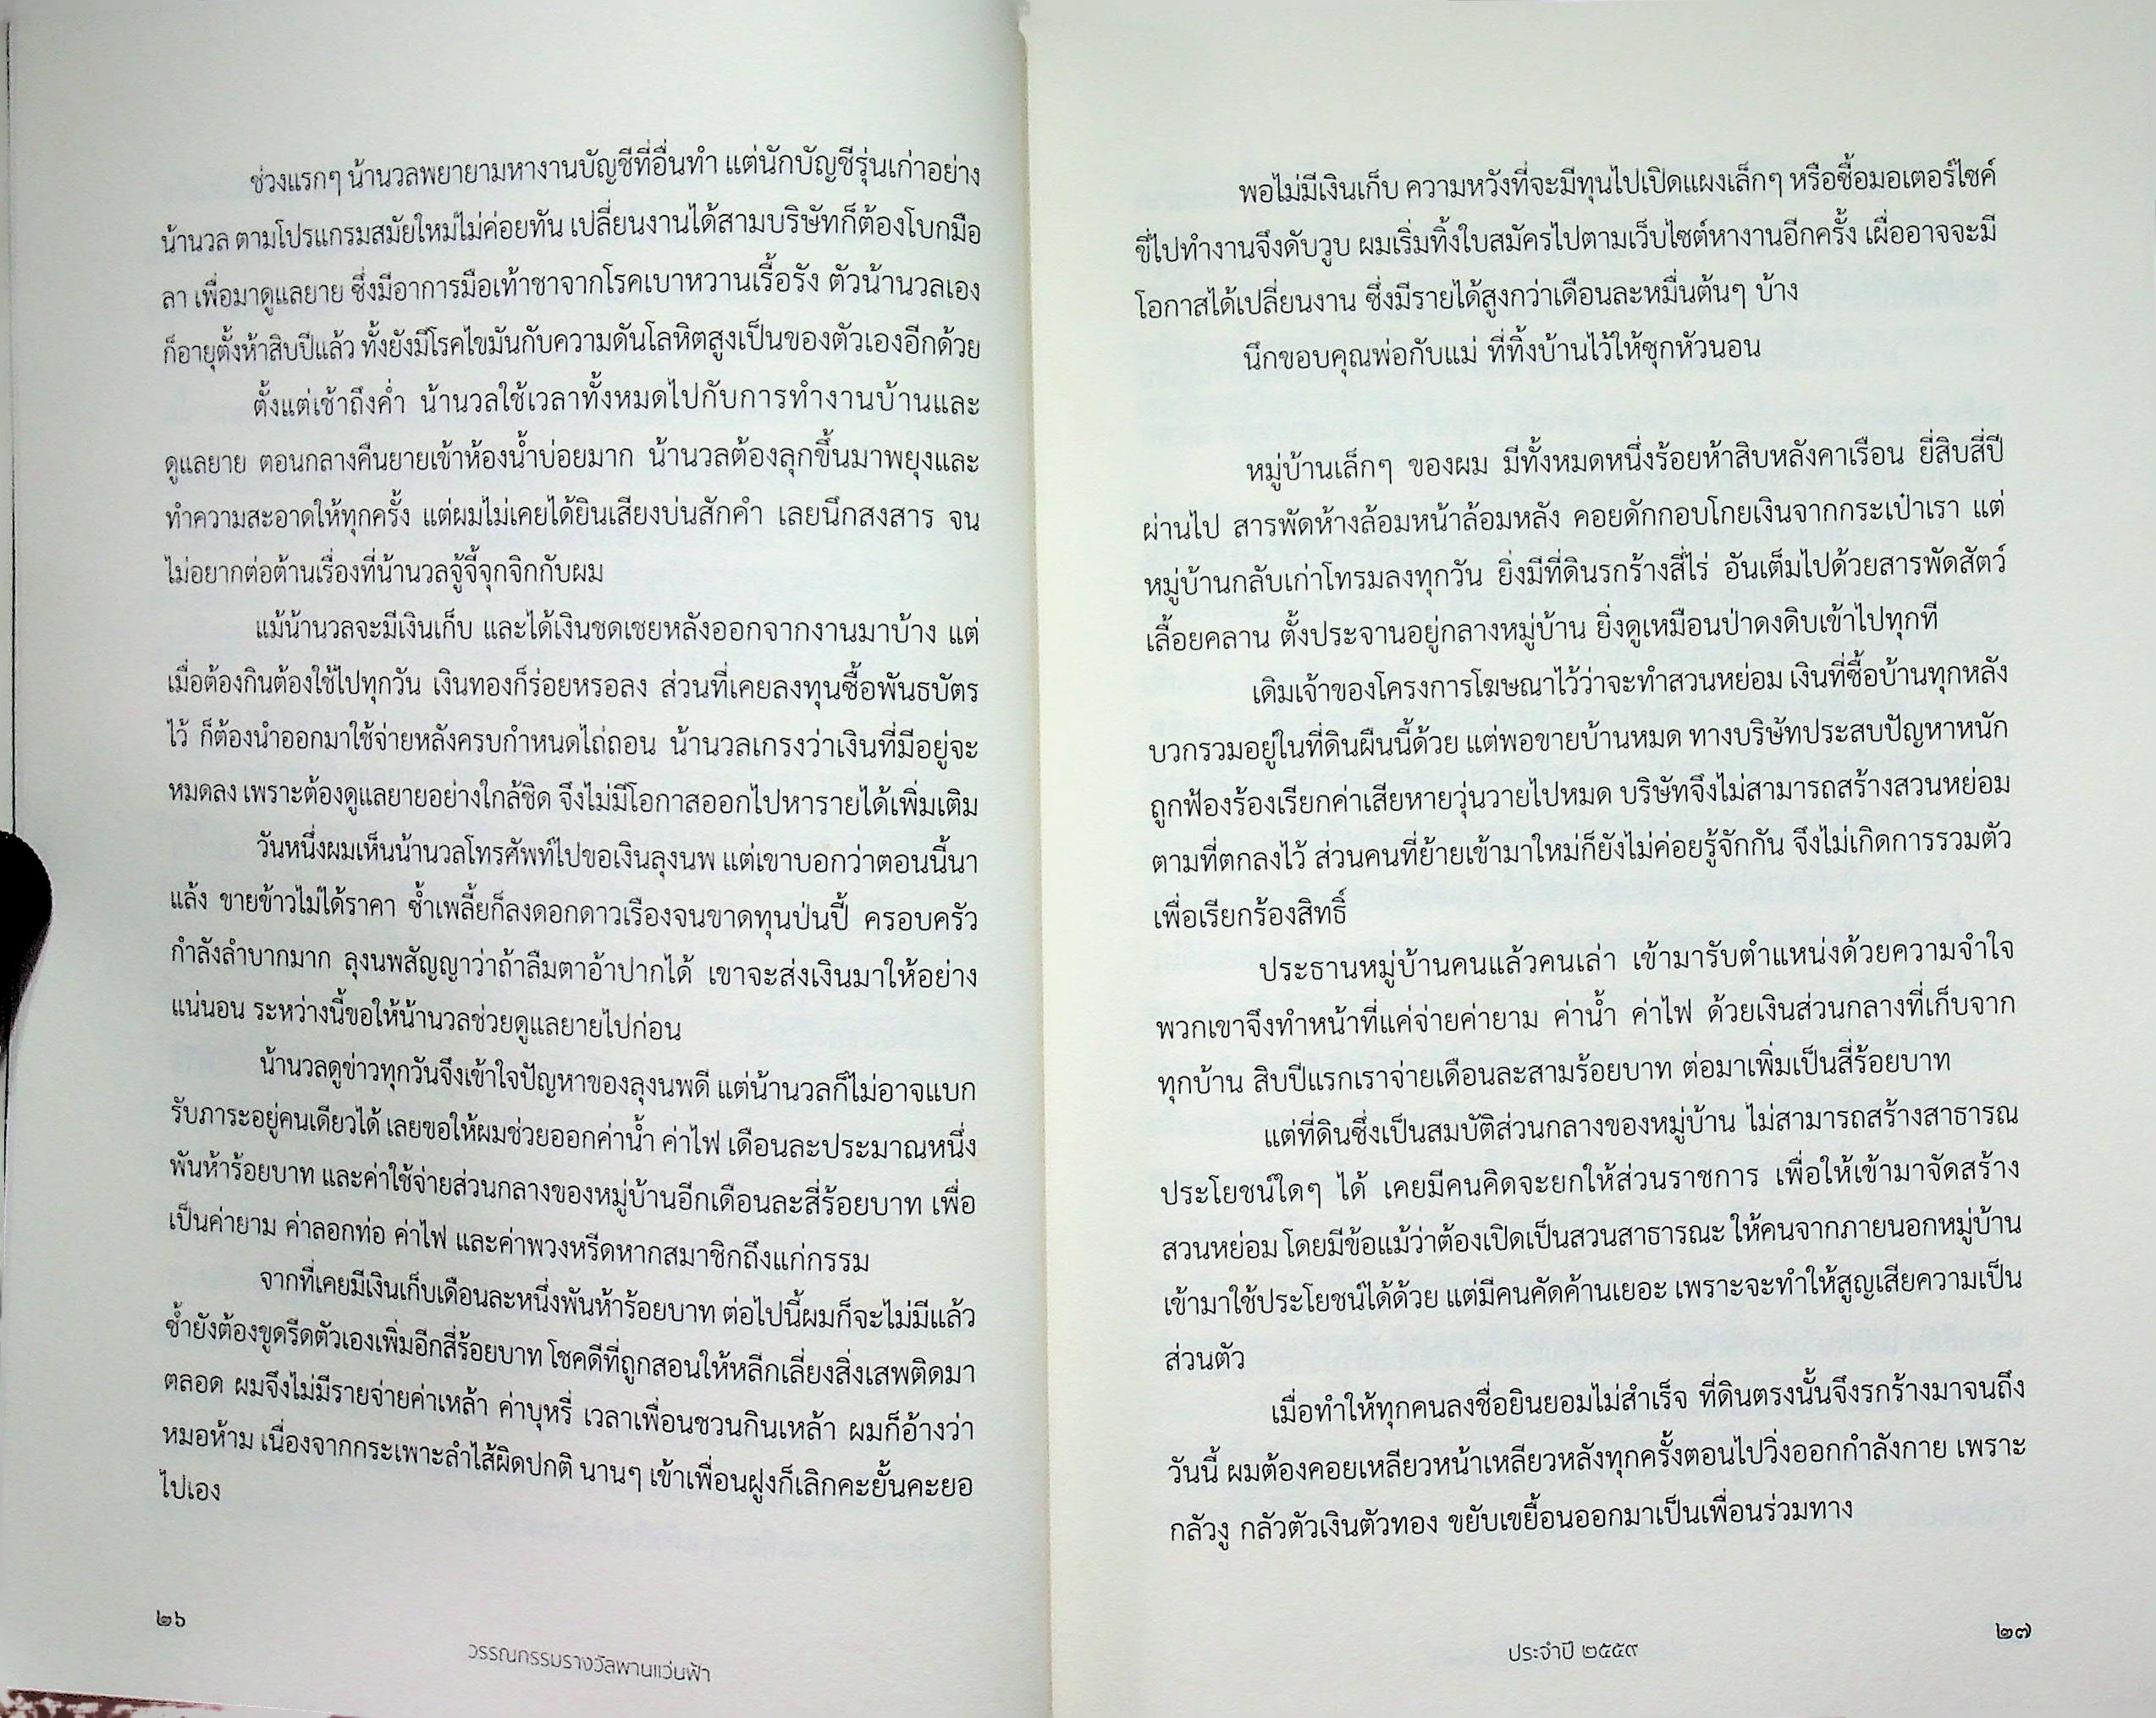 ช่วงแรกๆ น้านวลพยายามหางานบัญชีที่อื่นทำ แต่นักบัญชีรุ่นเก่าอย่าง
น้านวล ตามโปรแกรมสมัยใหม่ไม่ค่อยทัน เปลี่ยนงานได้สามบริษัทก็ต้องโบกมือ
ลา เพื่อมาดูแลยาย ซึ่งมีอาการมือเท้าชาจากโรคเบาหวานเรื้อรัง ตัวน้านวลเอง
ก็อายุตั้งห้าสิบปีแล้ว ทั้งยังมีโรคไขมันกับความดันโลหิตสูงเป็นของตัวเองอีกด้วย
ตั้งแต่เช้าถึงค่ำ น้านวลใช้เวลาทั้งหมดไปกับการทำงานบ้านและ
ดูแลยาย ตอนกลางคืนยายเข้าห้องน้ำบ่อยมาก น้านวลต้องลุกขึ้นมาพยุงและ
ทำความสะอาดให้ทุกครั้ง แต่ผมไม่เคยได้ยินเสียงบ่นสักคำ เลยนึกสงสาร จน
ไม่อยากต่อต้านเรื่องที่น้านวลจู้จี้จุกจิกกับผม
แม้น้านวลจะมีเงินเก็บ และได้เงินชดเชยหลังออกจากงานมาบ้าง แต่
เมื่อต้องกินต้องใช้ไปทุกวัน เงินทองก็ร่อยหรอลง ส่วนที่เคยลงทุนซื้อพันธบัตร
ไว้ ก็ต้องนำออกมาใช้จ่ายหลังครบกำหนดไถ่ถอน น้านวลเกรงว่าเงินที่มีอยู่จะ
หมดลง เพราะต้องดูแลยายอย่างใกล้ชิด จึงไม่มีโอกาสออกไปหารายได้เพิ่มเติม
วันหนึ่งผมเห็นน้านวลโทรศัพท์ไปขอเงินลุงนพ แต่เขาบอกว่าตอนนี้นา
แล้ง ขายข้าวไม่ได้ราคา ซ้ำเพลี้ยก็ลงดอกดาวเรืองจนขาดทุนป่นปี้ ครอบครัว
กำลังลำบากมาก ลุงนพสัญญาว่าถ้าลืมตาอ้าปากได้ เขาจะส่งเงินมาให้อย่าง
แน่นอน ระหว่างนี้ขอให้น้านวลช่วยดูแลยายไปก่อน
น้านวลดูข่าวทุกวันจึงเข้าใจปัญหาของลุงนพดี แต่น้านวลก็ไม่อาจแบก
รับภาระอยู่คนเดียวได้ เลยขอให้ผมช่วยออกค่าน้ำ ค่าไฟ เดือนละประมาณหนึ่ง
พันห้าร้อยบาท และค่าใช้จ่ายส่วนกลางของหมู่บ้านอีกเดือนละสี่ร้อยบาท เพื่อ
เป็นค่ายาม ค่าลอกท่อ ค่าไฟ และค่าพวงหรีดหากสมาชิกถึงแก่กรรม
จากที่เคยมีเงินเก็บเดือนละหนึ่งพันห้าร้อยบาท ต่อไปนี้ผมก็จะไม่มีแล้ว
ซ้ำยังต้องขูดรีดตัวเองเพิ่มอีกสี่ร้อยบาท โชคดีที่ถูกสอนให้หลีกเลี่ยงสิ่งเสพติดมา
ตลอด ผมจึงไม่มีรายจ่ายค่าเหล้า ค่าบุหรี่ เวลาเพื่อนชวนกินเหล้า ผมก็อ้างว่า
หมอห้าม เนื่องจากกระเพาะลำไส้ผิดปกติ นานๆ เข้าเพื่อนฝูงก็เลิกคะยั้นคะยอ
ไปเอง
๒๖
วรรณกรรมรางวัลพานแว่นฟ้า
พอไม่มีเงินเก็บ ความหวังที่จะมีทุนไปเปิดแผงเล็กๆ หรือซื้อมอเตอร์ไซค์
ขี่ไปทำงานจึงดับวูบ ผมเริ่มทิ้งใบสมัครไปตามเว็บไซต์หางานอีกครั้ง เผื่ออาจจะมี
โอกาสได้เปลี่ยนงาน ซึ่งมีรายได้สูงกว่าเดือนละหมื่นต้นๆ บ้าง
นึกขอบคุณพ่อกับแม่ ที่ทิ้งบ้านไว้ให้ซุกหัวนอน
หมู่บ้านเล็กๆ ของผม มีทั้งหมดหนึ่งร้อยห้าสิบหลังคาเรือน ยี่สิบสี่ปี
ผ่านไป สารพัดห้างล้อมหน้าล้อมหลัง คอยดักกอบโกยเงินจากกระเป๋าเรา แต่
หมู่บ้านกลับเก่าโทรมลงทุกวัน ยิ่งมีที่ดินรกร้างสี่ไร่ อันเต็มไปด้วยสารพัดสัตว์
เลื้อยคลาน ตั้งประจานอยู่กลางหมู่บ้าน ยิ่งดูเหมือนป่าดงดิบเข้าไปทุกที
เดิมเจ้าของโครงการโฆษณาไว้ว่าจะทำสวนหย่อม เงินที่ซื้อบ้านทุกหลัง
บวกรวมอยู่ในที่ดินผืนนี้ด้วย แต่พอขายบ้านหมด ทางบริษัทประสบปัญหาหนัก
ถูกฟ้องร้องเรียกค่าเสียหายวุ่นวายไปหมด บริษัทจึงไม่สามารถสร้างสวนหย่อม
ตามที่ตกลงไว้ ส่วนคนที่ย้ายเข้ามาใหม่ก็ยังไม่ค่อยรู้จักกัน จึงไม่เกิดการรวมตัว
เพื่อเรียกร้องสิทธิ์
ประธานหมู่บ้านคนแล้วคนเล่า เข้ามารับตำแหน่งด้วยความจำใจ
พวกเขาจึงทำหน้าที่แค่จ่ายค่ายาม ค่าน้ำ ค่าไฟ ด้วยเงินส่วนกลางที่เก็บจาก
ทุกบ้าน สิบปีแรกเราจ่ายเดือนละสามร้อยบาท ต่อมาเพิ่มเป็นสี่ร้อยบาท
แต่ที่ดินซึ่งเป็นสมบัติส่วนกลางของหมู่บ้าน ไม่สามารถสร้างสาธารณ
ประโยชน์ใดๆ ได้ เคยมีคนคิดจะยกให้ส่วนราชการ เพื่อให้เข้ามาจัดสร้าง
สวนหย่อม โดยมีข้อแม้ว่าต้องเปิดเป็นสวนสาธารณะ ให้คนจากภายนอกหมู่บ้าน
เข้ามาใช้ประโยชน์ได้ด้วย แต่มีคนคัดค้านเยอะ เพราะจะทำให้สูญเสียความเป็น
ส่วนตัว
เมื่อทำให้ทุกคนลงชื่อยินยอมไม่สำเร็จ ที่ดินตรงนั้นจึงรกร้างมาจนถึง
วันนี้ ผมต้องคอยเหลียวหน้าเหลียวหลังทุกครั้งตอนไปวิ่งออกกำลังกาย เพราะ
กลัวงู กลัวตัวเงินตัวทอง ขยับเขยื้อนออกมาเป็นเพื่อนร่วมทาง
๒๗
ประจำปี ๒๕๕๙